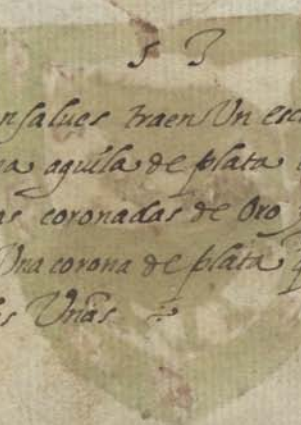 53
nsalues traen Un esc
na aguila de plata
as coronadas de Oro
Una corona de plata
s Uñas